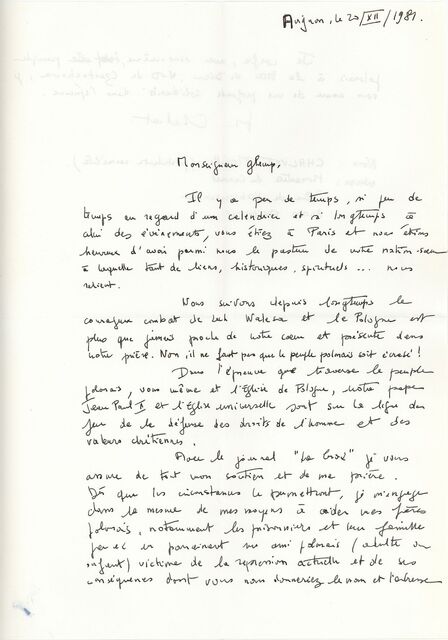 Avignon, le 20/XII/1981.
Monseigneur Glemp,
Il y a peu de temps, si peu de
temps en regard d'un calendrier et si longtemps à
celui des évènements, vous étiez à Paris et nous étions
heureux d'avoir parmi nous le pasteur de votre nation-soeur
à laquelle tant de liens, historiques, spirituels ... nous
relient.
Nous suivons depuis longtemps le
courageux combat de Lech Walesa et la Pologne est
plus que jamais proche de notre coeur et présente dans
notre prière. Non, il ne faut pas que le peuple polonais soit écrasé !
Dans l'épreuve que traverse le peuple
polonais, vous même et l'Eglise de Pologne, notre pape
Jean Paul II et l'Eglise universelle sont sur la ligne de
feu de la défense des droits de l'homme et des
valeurs chrétiennes.
Avec le journal "La Croix" je vous
assure de tout mon soutien et de ma prière.
Dès que les circonstances le permettront, je m'engage
dans la mesure de mes moyens à aider nos frères
polonais, notamment les prisonniers et leur famille
en parrainant un ami polonais (adulte ou
enfant) victime de la répression actuelle et de ses
conséquences dont vous nous donneriez le nom et l'adresse